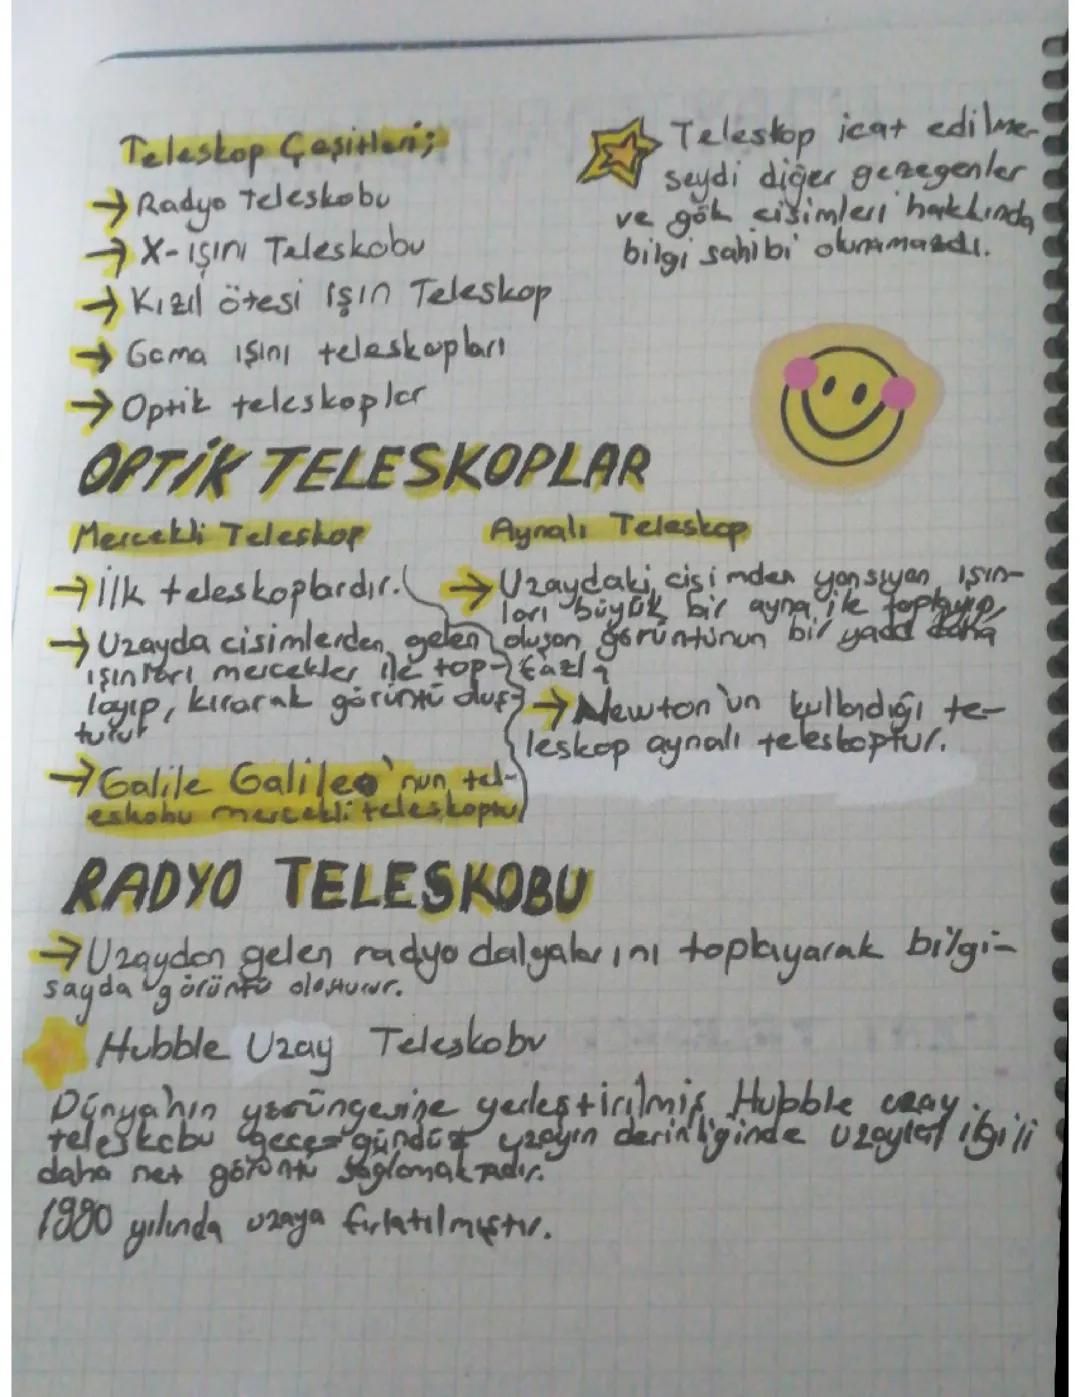 Teleskop Çeşitleri;
→ Radyo Teleskobu
→ X-ışını Teleskobu
→ Kızıl ötesi ışın Teleskop
→ Gama ışını teleskopları
→ Optik teleskoplar
Teleskop icat edilme-
seydi diğer gezegenler
ve gök cisimleri hakkında
bilgi sahibi olunamazdı.
OPTİK TELESKOPLAR
Mercekli Teleskop
→ İlk teleskoplardır.
→ Uzayda cisimlerden gelen
ışınları mercekler ile top-
layıp, kırarak görüntü oluş-
turur
→ Galile Galileo'nun tel-
eskobu mercekli teleskoptu
Aynalı Teleskop
→ Uzaydaki cisimden yansıyan ışın-
ları büyük bir ayna ile toplayıp,
oluşan görüntünün bir yada daha
fazla
→ Newton'un kullandığı te-
leskop aynalı teleskoptur.
RADYO TELESKOBU
→ Uzaydan gelen radyo dalgalarını toplayarak bilgi-
sayda görüntü oluşturur.
Hubble Uzay Teleskobu
Dünya'nın yörüngesine yerleştirilmiş Hubble uzay
teleskobu gece gündüz uzayın derinliğinde uzayla ilgili
daha net görüntü sağlamaktadır.
1990 yılında uzaya fırlatılmıştır.